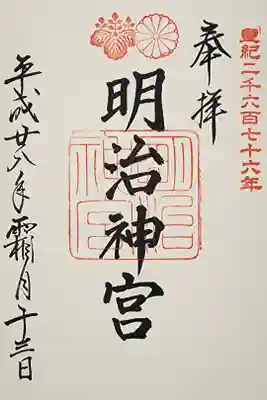 皇紀二千六百七十六年
奉拝
明治神宮
明治
神宮
平成廿八年霜月十三日